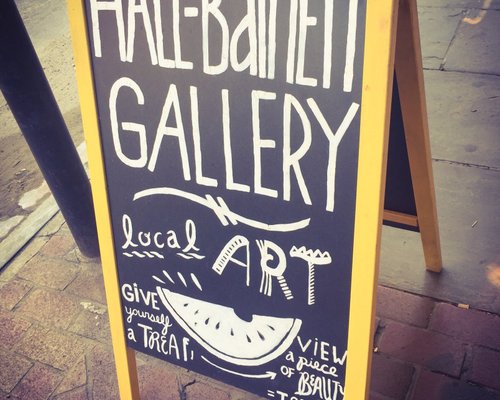 HALL-BaRNETT
GALLERY
local ART
GIVE
yourself
a TREAT,
VIEW
a piece
of BEAUTY